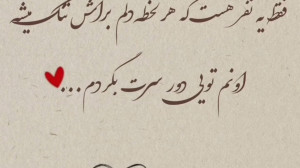 فقط یه نفر هست که هر لحظه دلم براش تنگ میشه
اونم تویی دور سرت بگردم ...